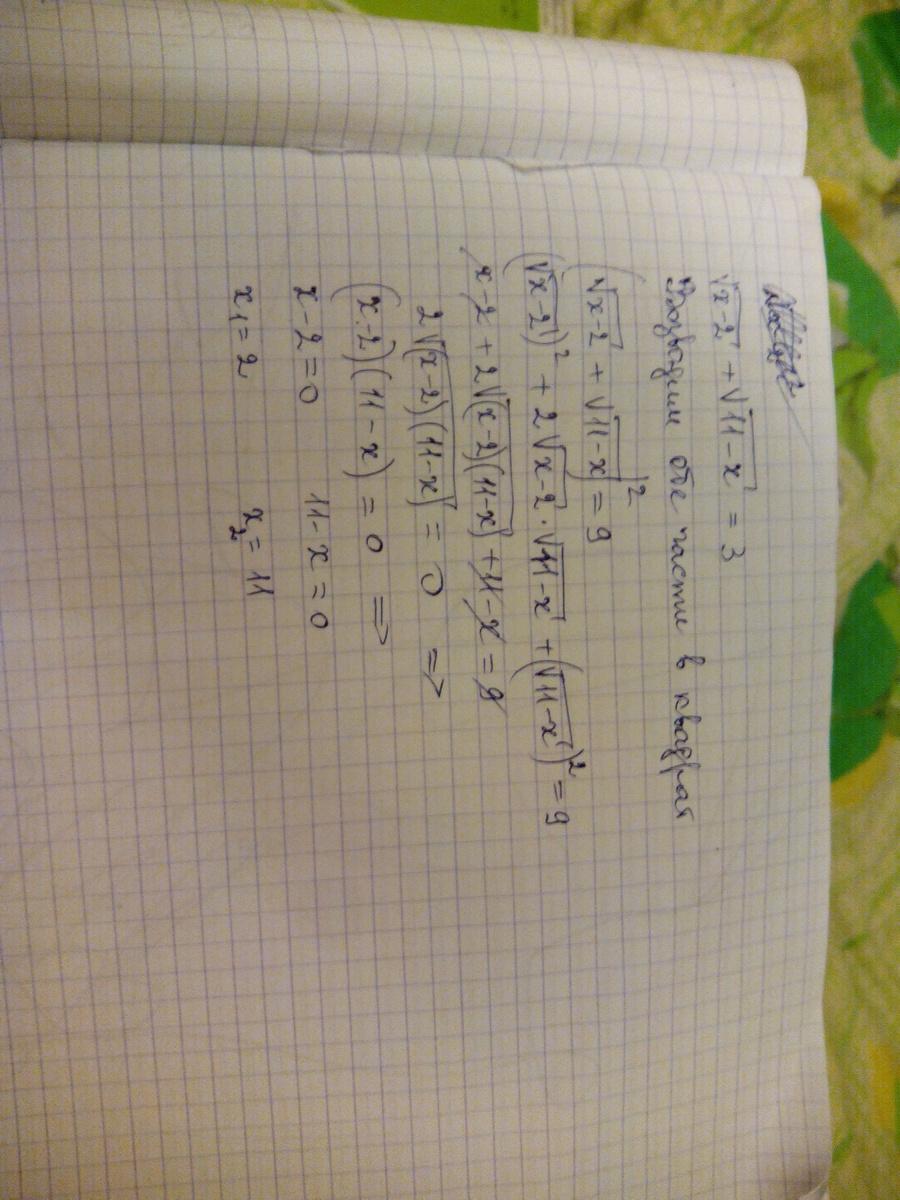 √x-2 + √11-x = 3
Возведём обе части в квадрат
(√x-2 + √11-x)² = 9
(√x-2)² + 2√x-2 · √11-x + (√11-x)² = 9
x-2 + 2√(x-2)(11-x) + 11-x = 9
2√(x-2)(11-x) = 0 ⇒
(x-2)(11-x) = 0 ⇒
x-2=0 11-x=0
x₁=2 x₂=11